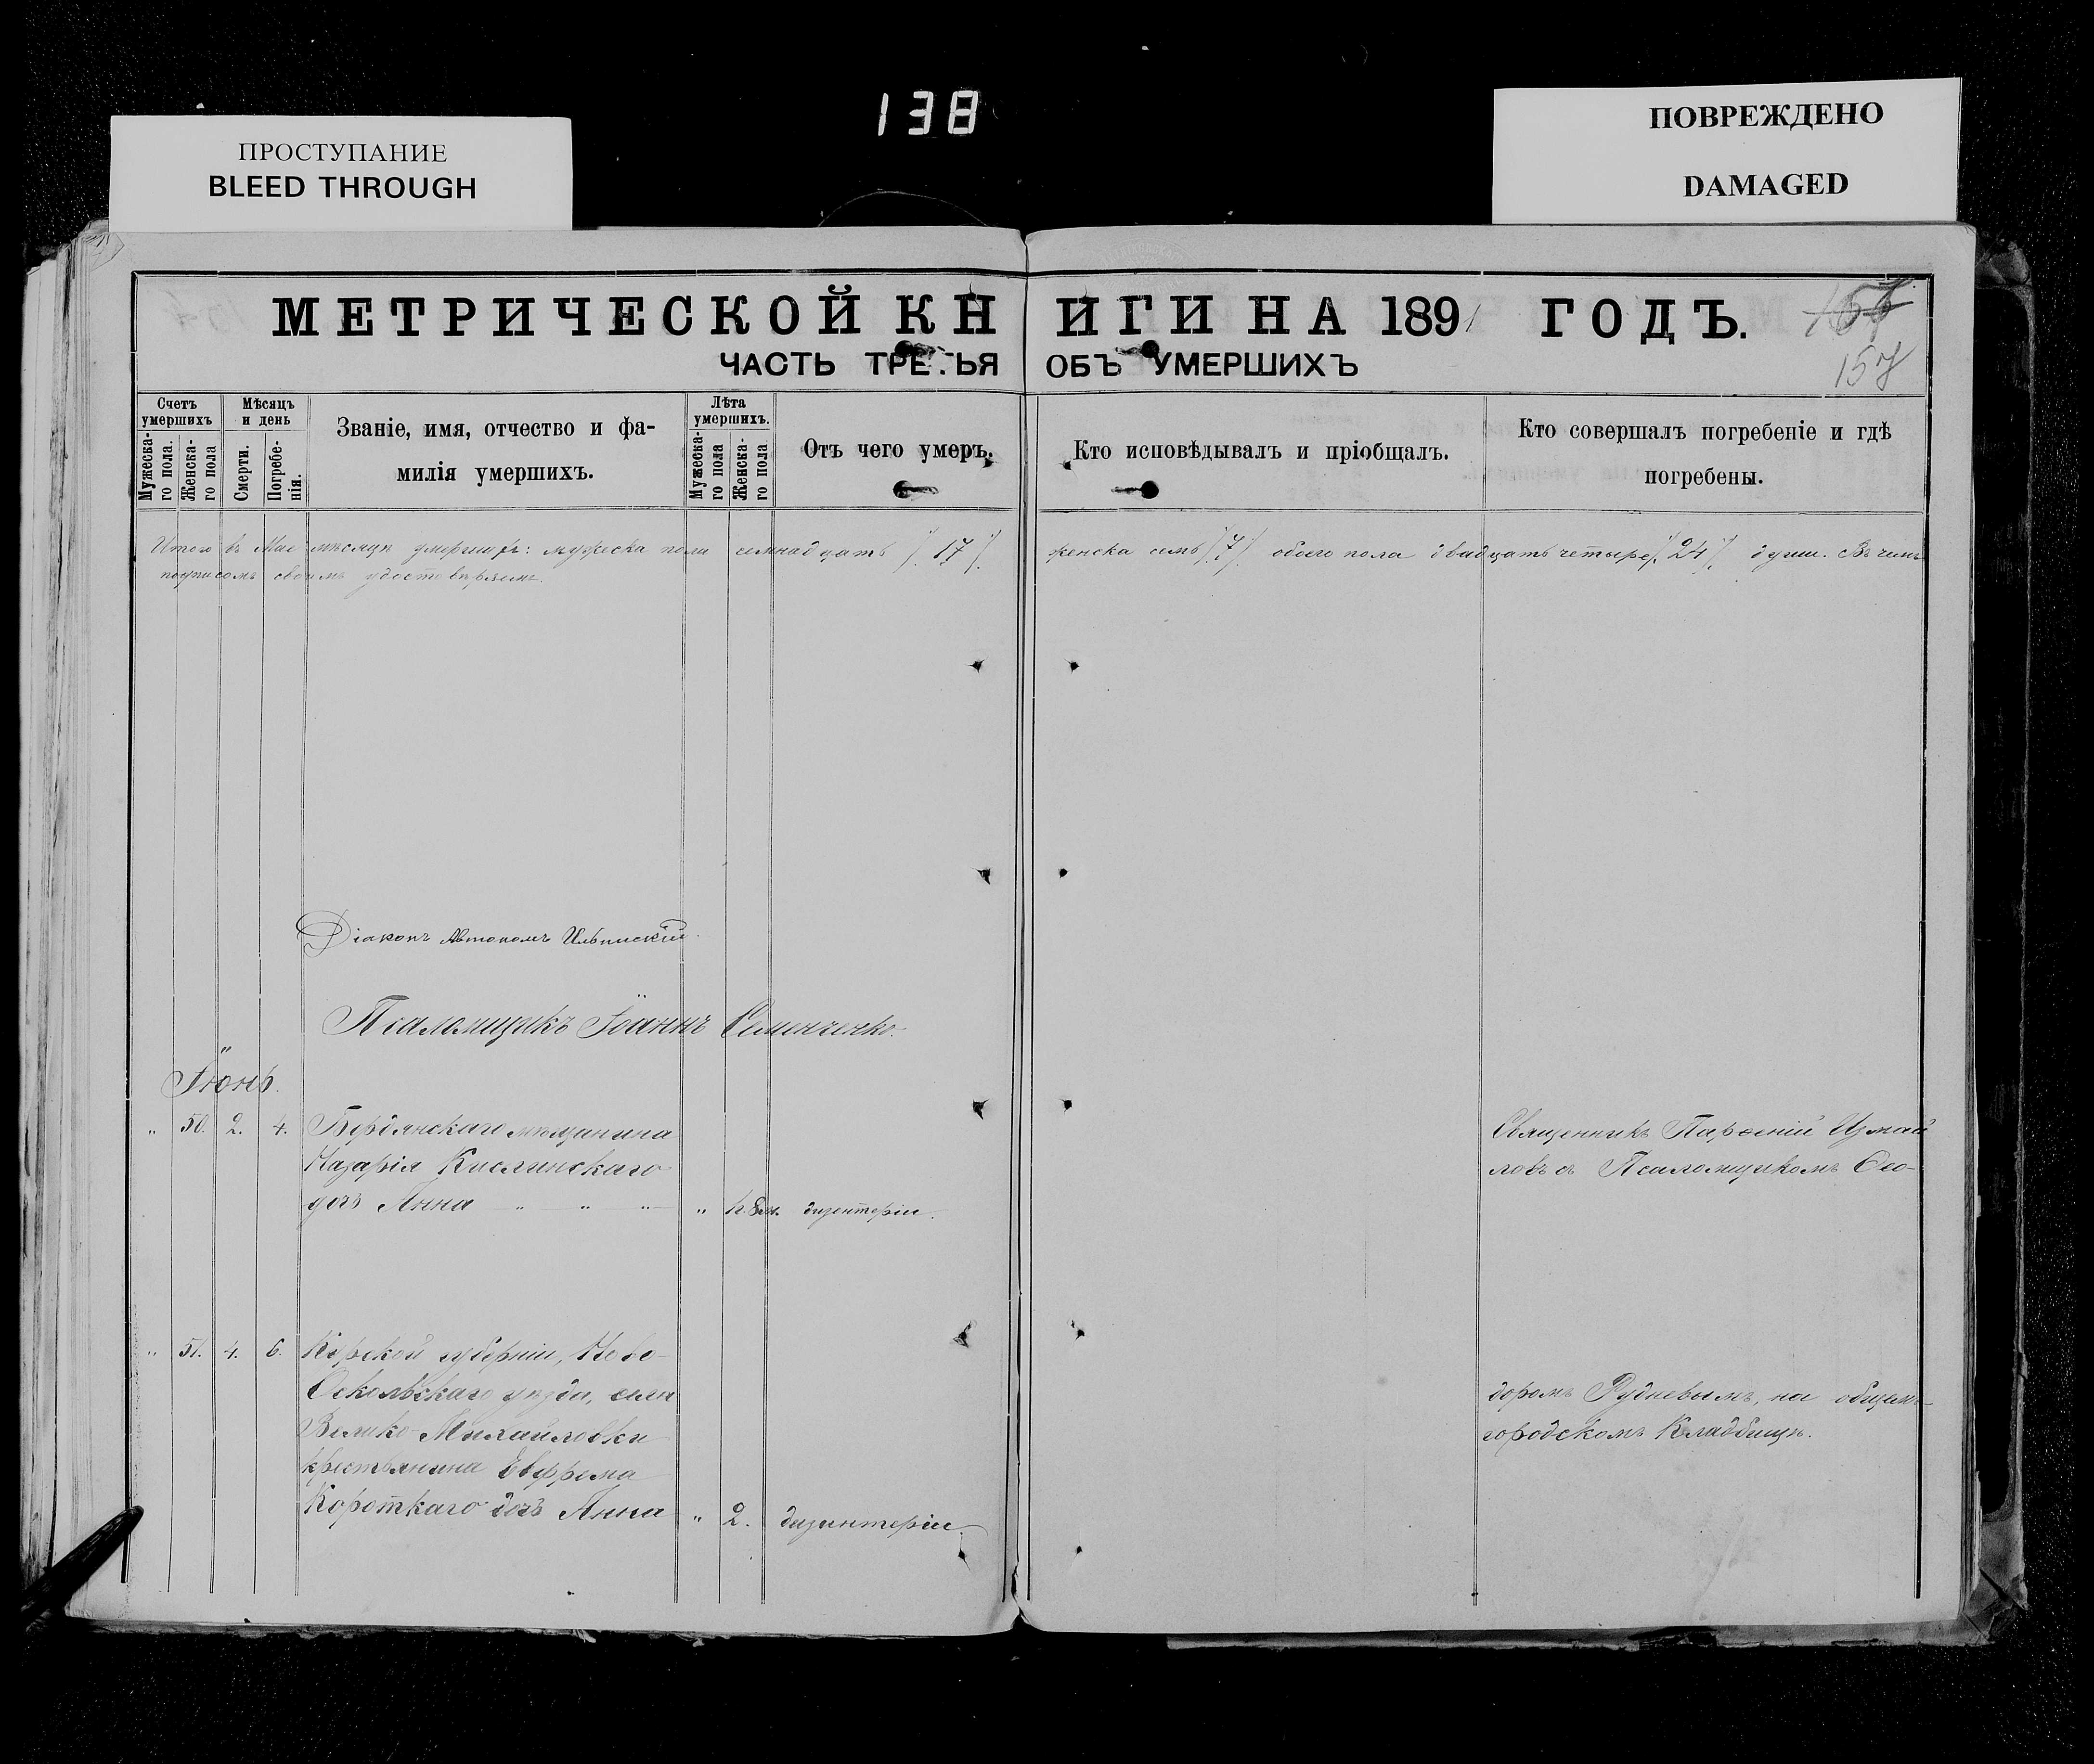 138
ПРОСТУПАНИЕ
BLEED THROUGH
ПОВРЕЖДЕНО
DAMAGED
МЕТРИЧЕСКОЙ КНИГИ НА 1891 ГОДЪ.
157
ЧАСТЬ ТРЕТЬЯ ОБЪ УМЕРШИХЪ
Счетъ умершихъ
Мужескаго пола.
Женскаго пола
Мѣсяцъ и день
Смерти.
Погребенія.
Званіе, имя, отчество и фамилія умершихъ.
Лѣта умершихъ.
Мужескаго пола
Женскаго пола
Отъ чего умеръ.
Кто исповѣдывалъ и пріобщалъ.
Кто совершалъ погребеніе и гдѣ погребены.
Итого въ Мае мѣсяцѣ умершихъ: мужеска пола семнадцать /.17/. женска семь /.7/. обоего пола двадцать четыре /.24/. души. Въ чемъ
подписомъ своимъ удостовѣряемъ.
Діаконъ Автономъ Ильинскій
Псаломщикъ Іоаннъ Семенченко.
Іюнь.
„ 50. 2. 4. Бердянскаго мѣщанина
Назарія Кислинскаго
дочь Анна „ „ „ „ дизентеріи.
Священникъ Парѳеній Измай
ловъ съ Псаломщикомъ Ѳео-
„ 51. 4. 6. Курской губерніи, Ново-
Оскольскаго уѣзда, села
Велико-Михайловки
крестьянина Евфрема
Короткаго дочь Анна „ 2. дизентеріи.
доромъ Рудневымъ, на общемъ
городскомъ Кладбищѣ.